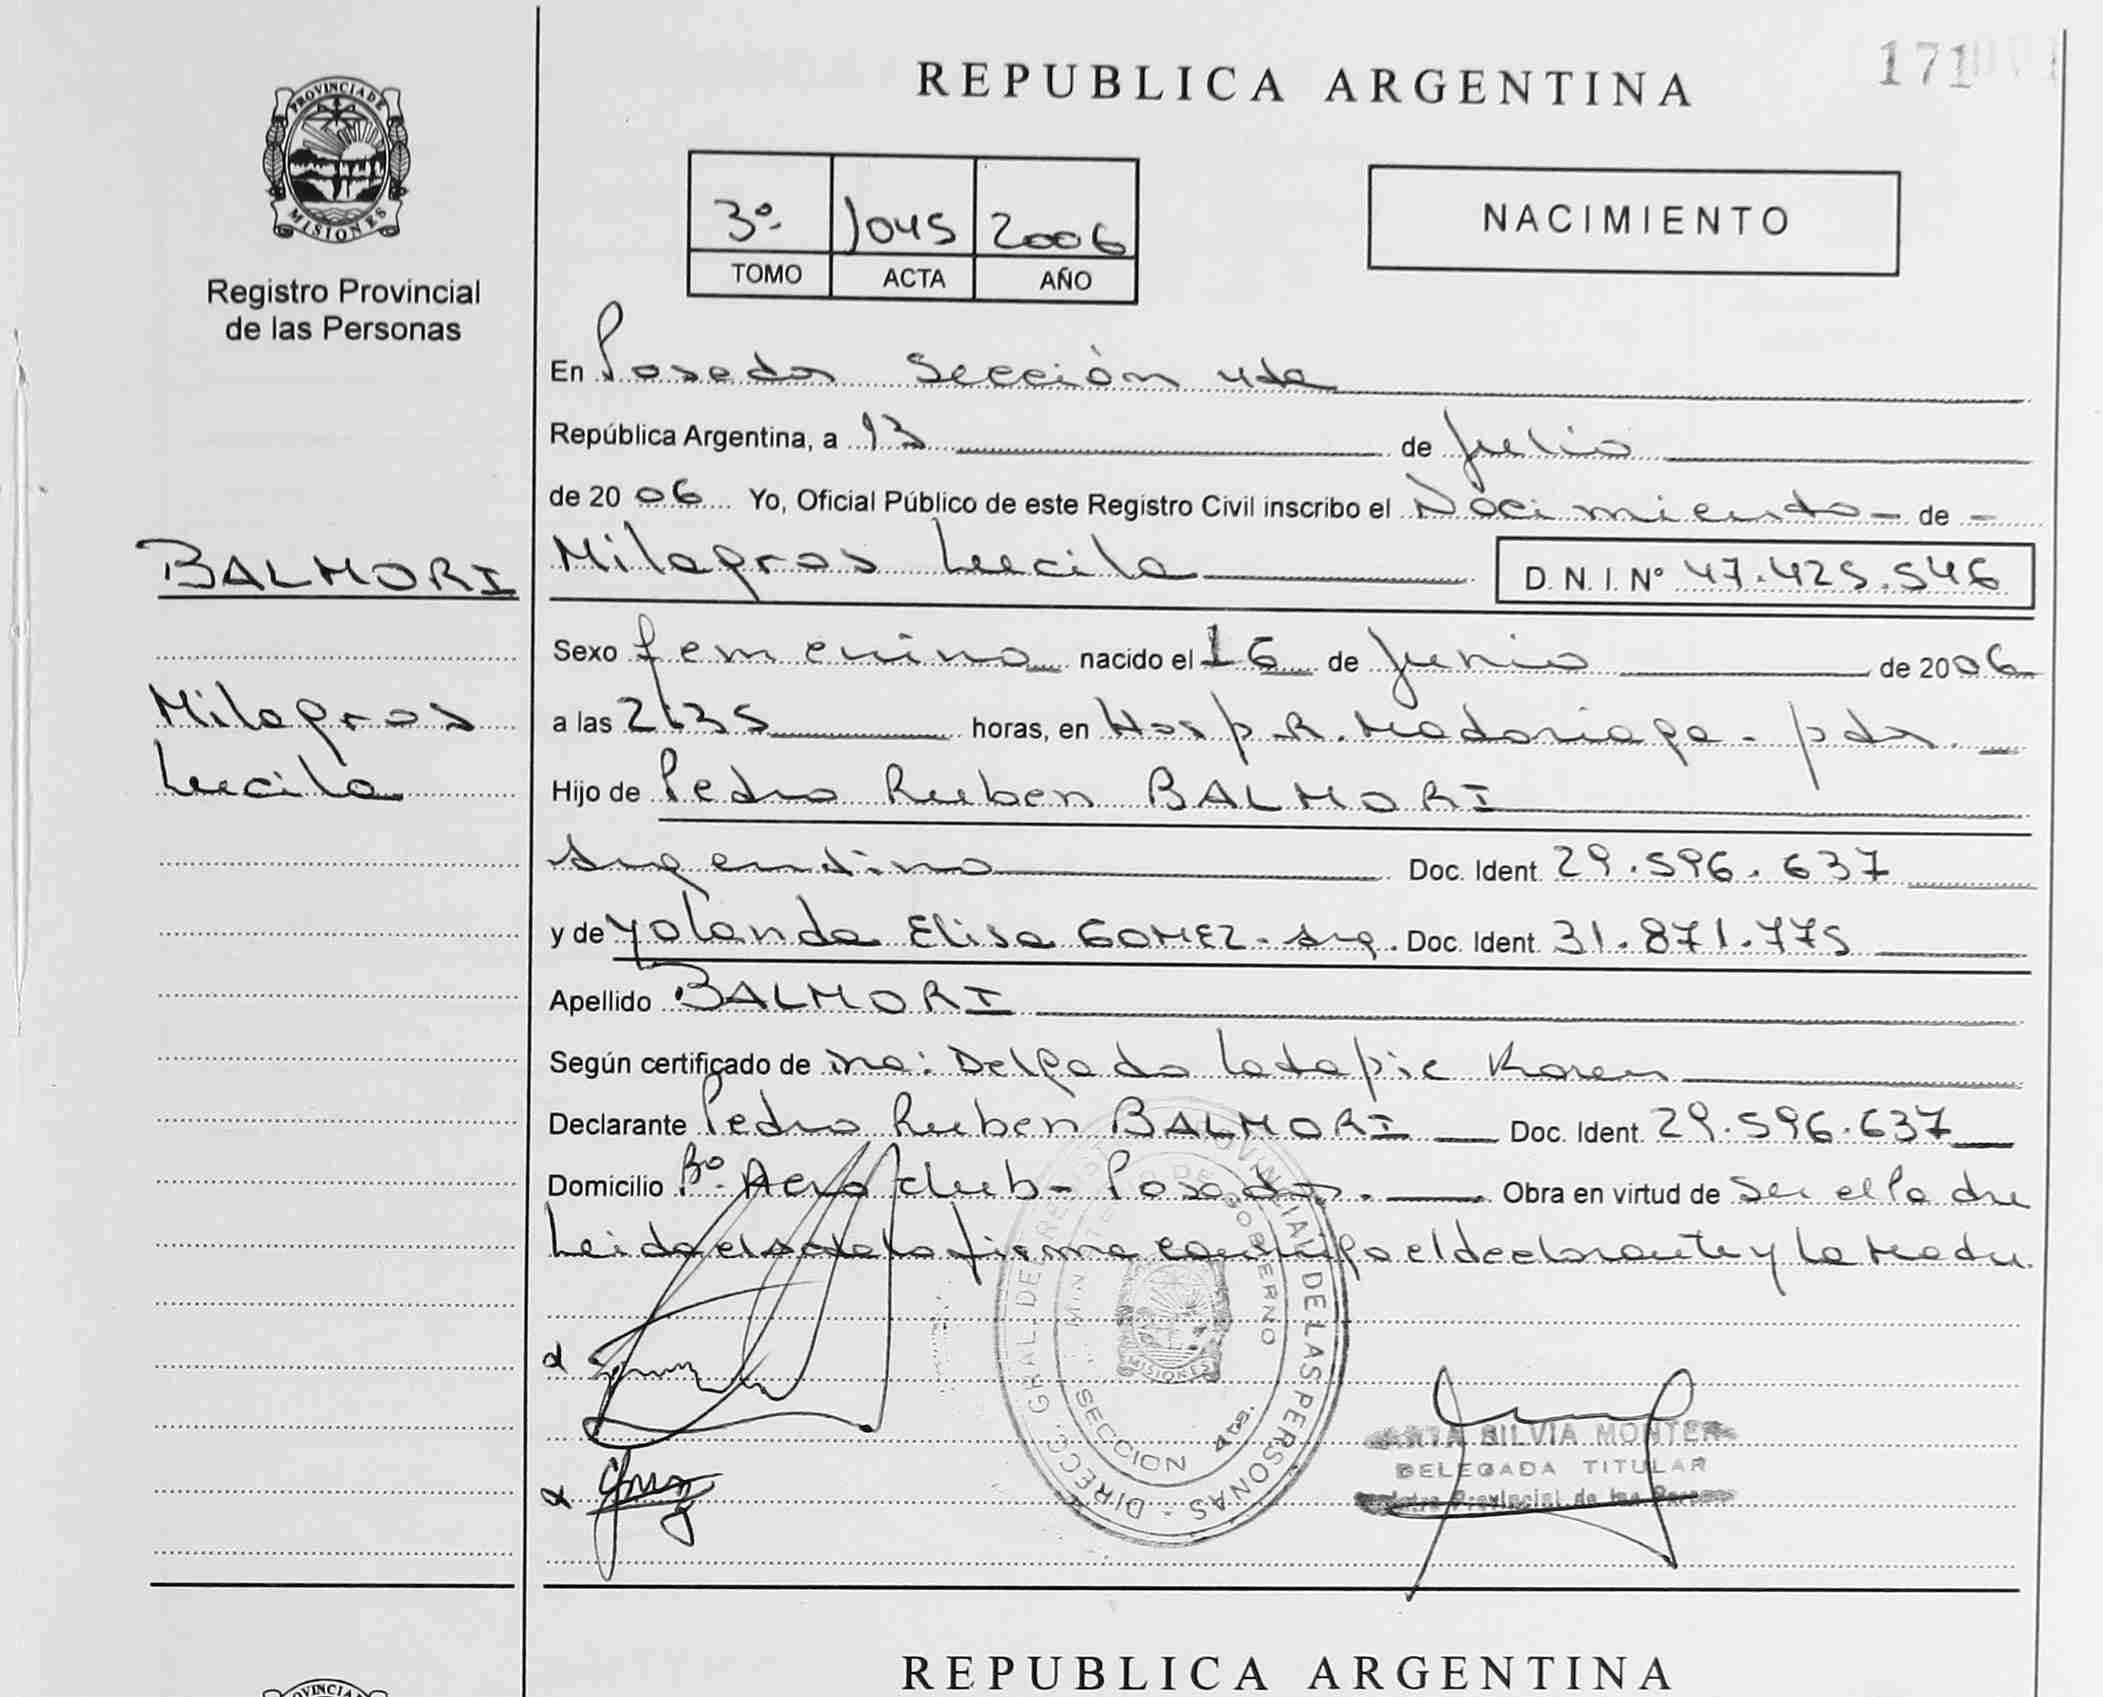 171
REPUBLICA ARGENTINA
PROVINCIA DE
MISIONES
Registro Provincial
de las Personas
3º 1045 2006
TOMO ACTA AÑO
NACIMIENTO
En Posadas Sección 4ta
República Argentina, a 13 de Julio
de 2006 Yo, Oficial Público de este Registro Civil inscribo el Nacimiento - de -
BALMORI
Milagros Lucila
D. N. I. Nº 47.425.546
Sexo femenino nacido el 16 de Junio de 2006
Milagros
Lucila
a las 2135 horas, en Hosp. R. Madariaga - pdas.
Hijo de Pedro Ruben BALMORI
Argentino Doc. Ident. 29.596.637
y de Yolanda Elisa GOMEZ - Arg. Doc. Ident. 31.871.775
Apellido BALMORI
Según certificado de Delgado Latapie Karen
Declarante Pedro Ruben BALMORI Doc. Ident. 29.596.637
Domicilio Bº Aero club - Posadas. Obra en virtud de ser el Padre
Leida el acta la firma conmigo el declarante y la Madre.
DIRECC. GRAL. DEL PROVINCIAL DE LAS PERSONAS
GOBIERNO
MISIONES
SECCION 4ta.
SILVIA MONTE
DELEGADA TITULAR
Provincial de las
REPUBLICA ARGENTINA